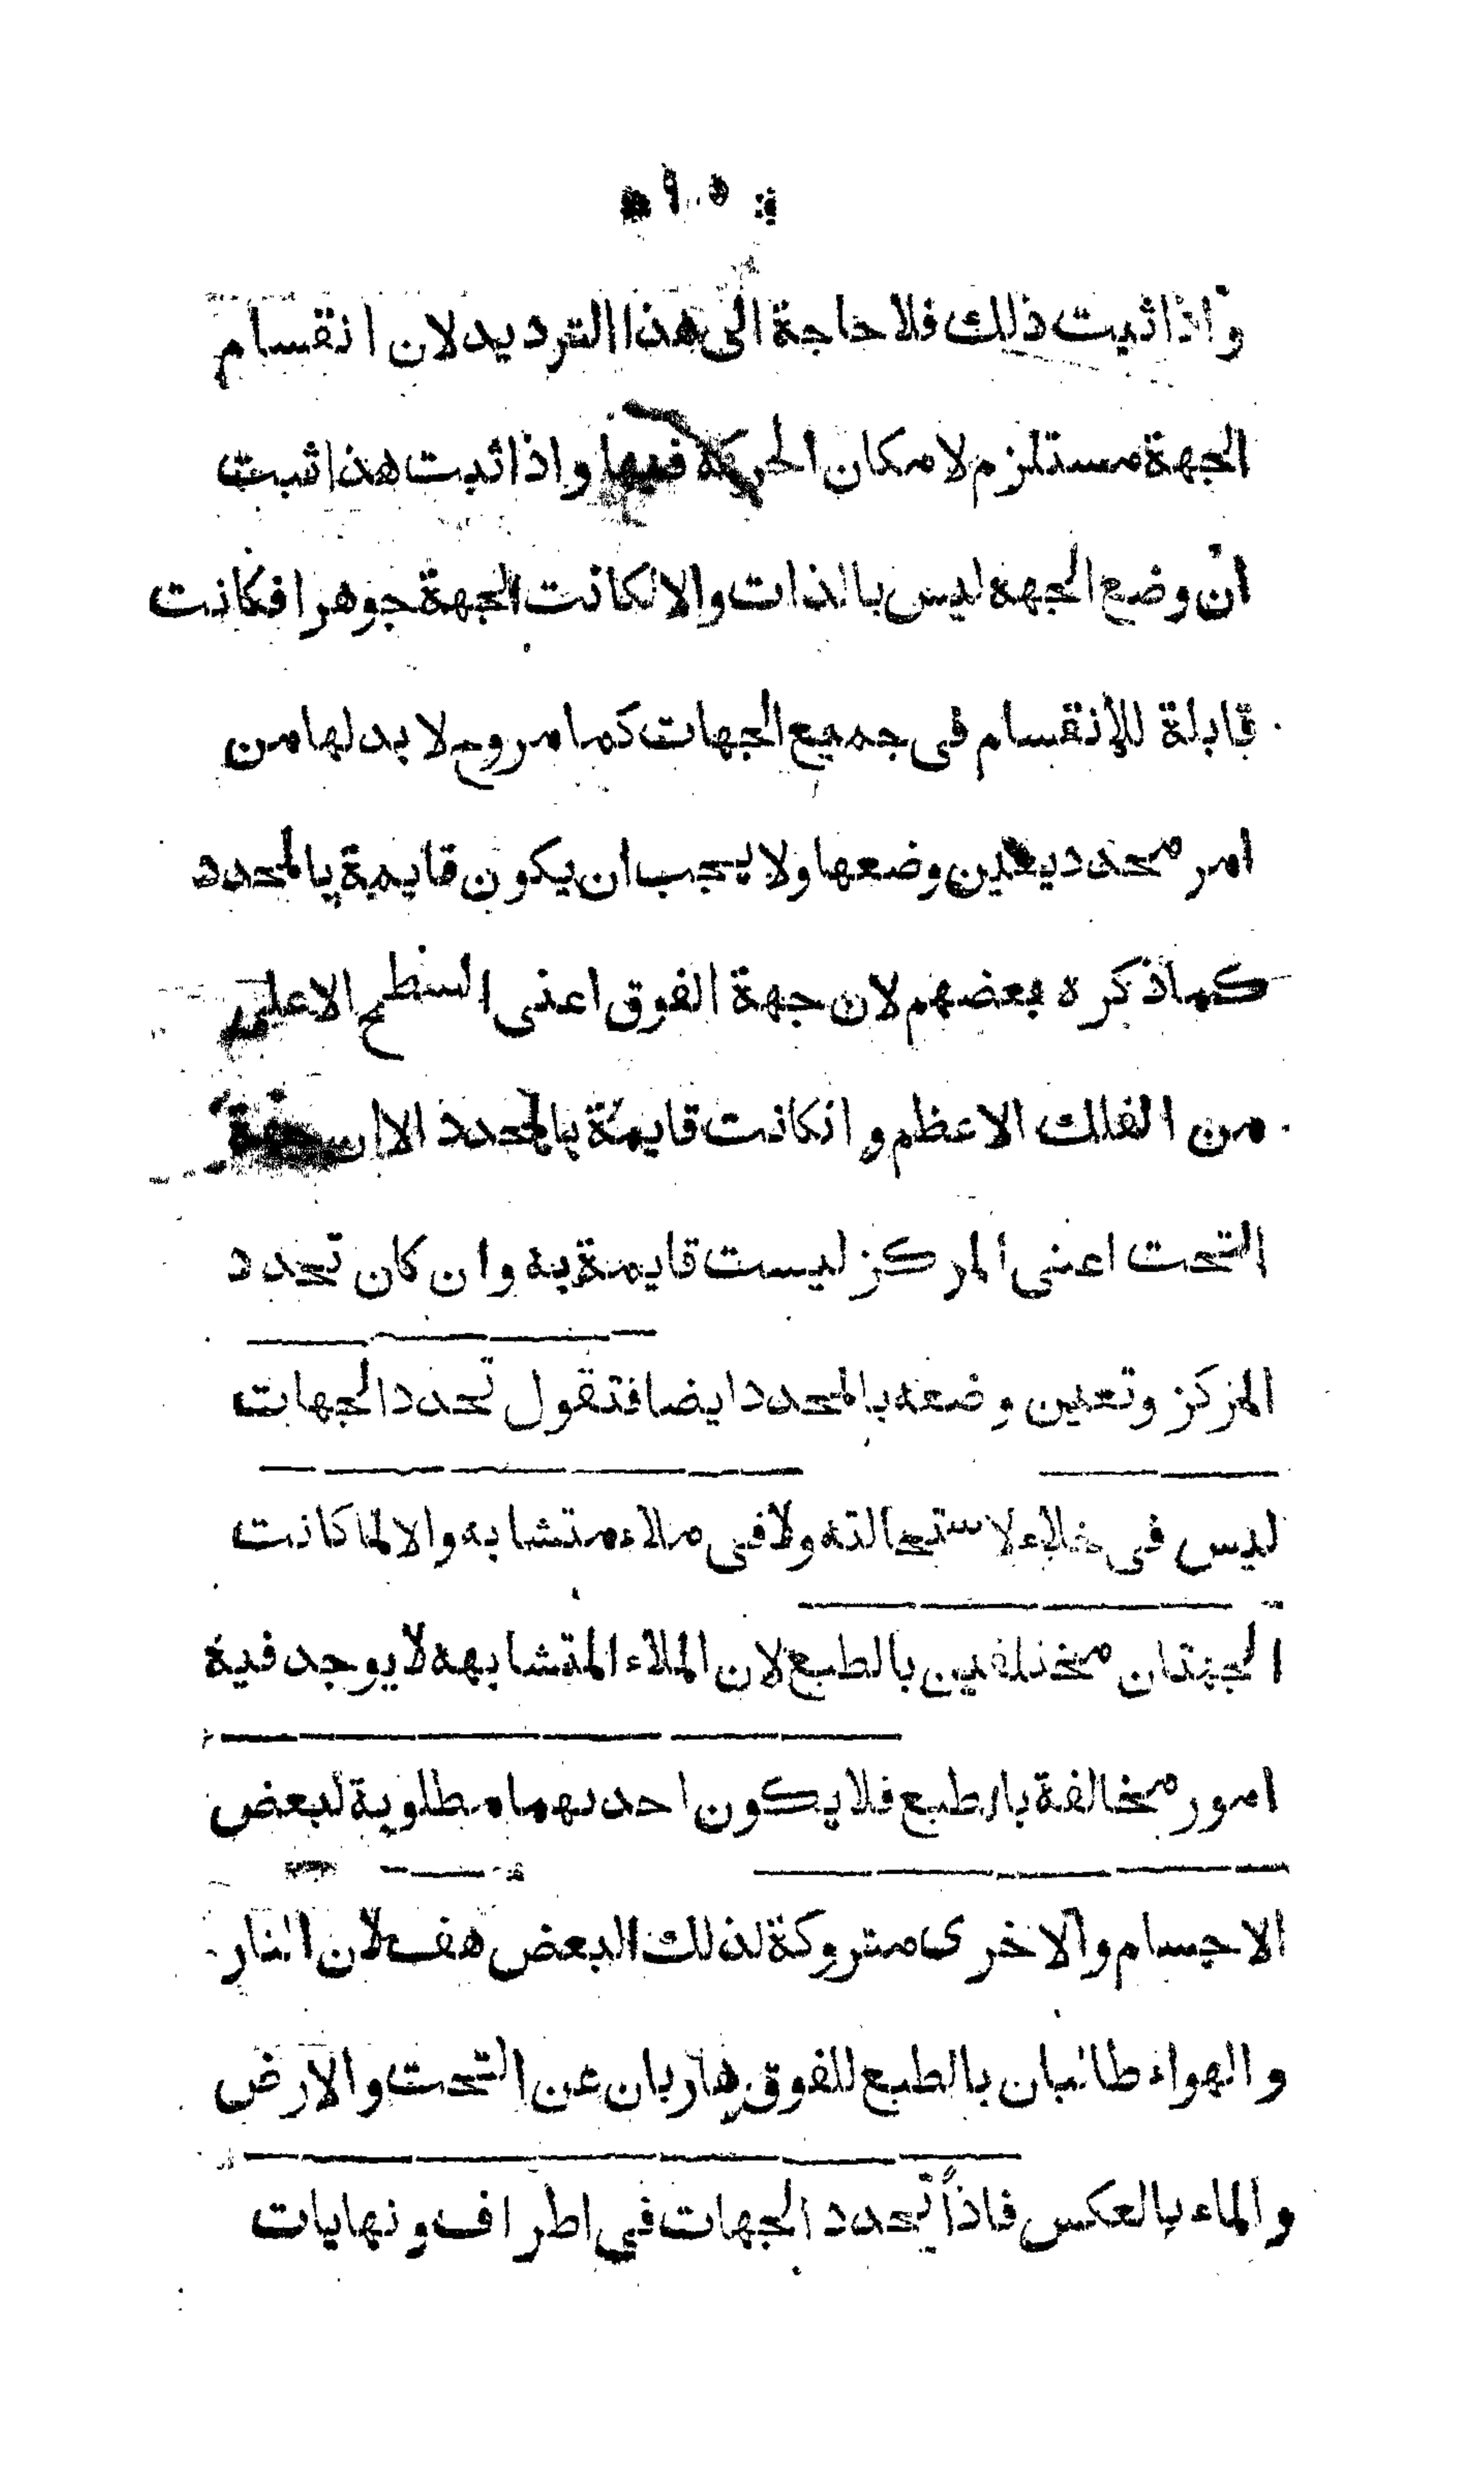 ٩٥
واذا ثبت ذلك فلا حاجة الى هذا الترديد لان انقسام
الجهة مستلزم لامكان الحركة فيها واذا ثبت هذا ثبت
ان وضع الجهة ليس بالذات والا لكانت الجهة جوهرا فكانت
قابلة للانقسام فى جميع الجهات كما مر وح لا بد لها من
امر محدد يعين وضعها ولا يجب ان يكون قايمة بالمحدد
كما ذكره بعضهم لان جهة الفوق اعنى السطح الاعلى
من الفلك الاعظم وانكانت قايمة بالمحدد الا ان جهة
التحت اعنى المركز ليست قايمة به وان كان تحدد
المركز وتعين وضعه بالمحدد ايضا فنقول تحدد الجهات
ليس فى خلاء لاستحالته ولا فى ملاء متشابه والا لما كانت
الجهتان مختلفين بالطبع لان الملاء المتشابه لا يوجد فيه
امور مخالفة بالطبع فلا يكون احدىهما مطلوبة لبعض
الاجسام والاخرى متروكة لذلك البعض هف لان النار
والهواء طالبان بالطبع للفوق هاربان عن التحت والارض
والماء بالعكس فاذاً تحدد الجهات في اطراف ونهايات